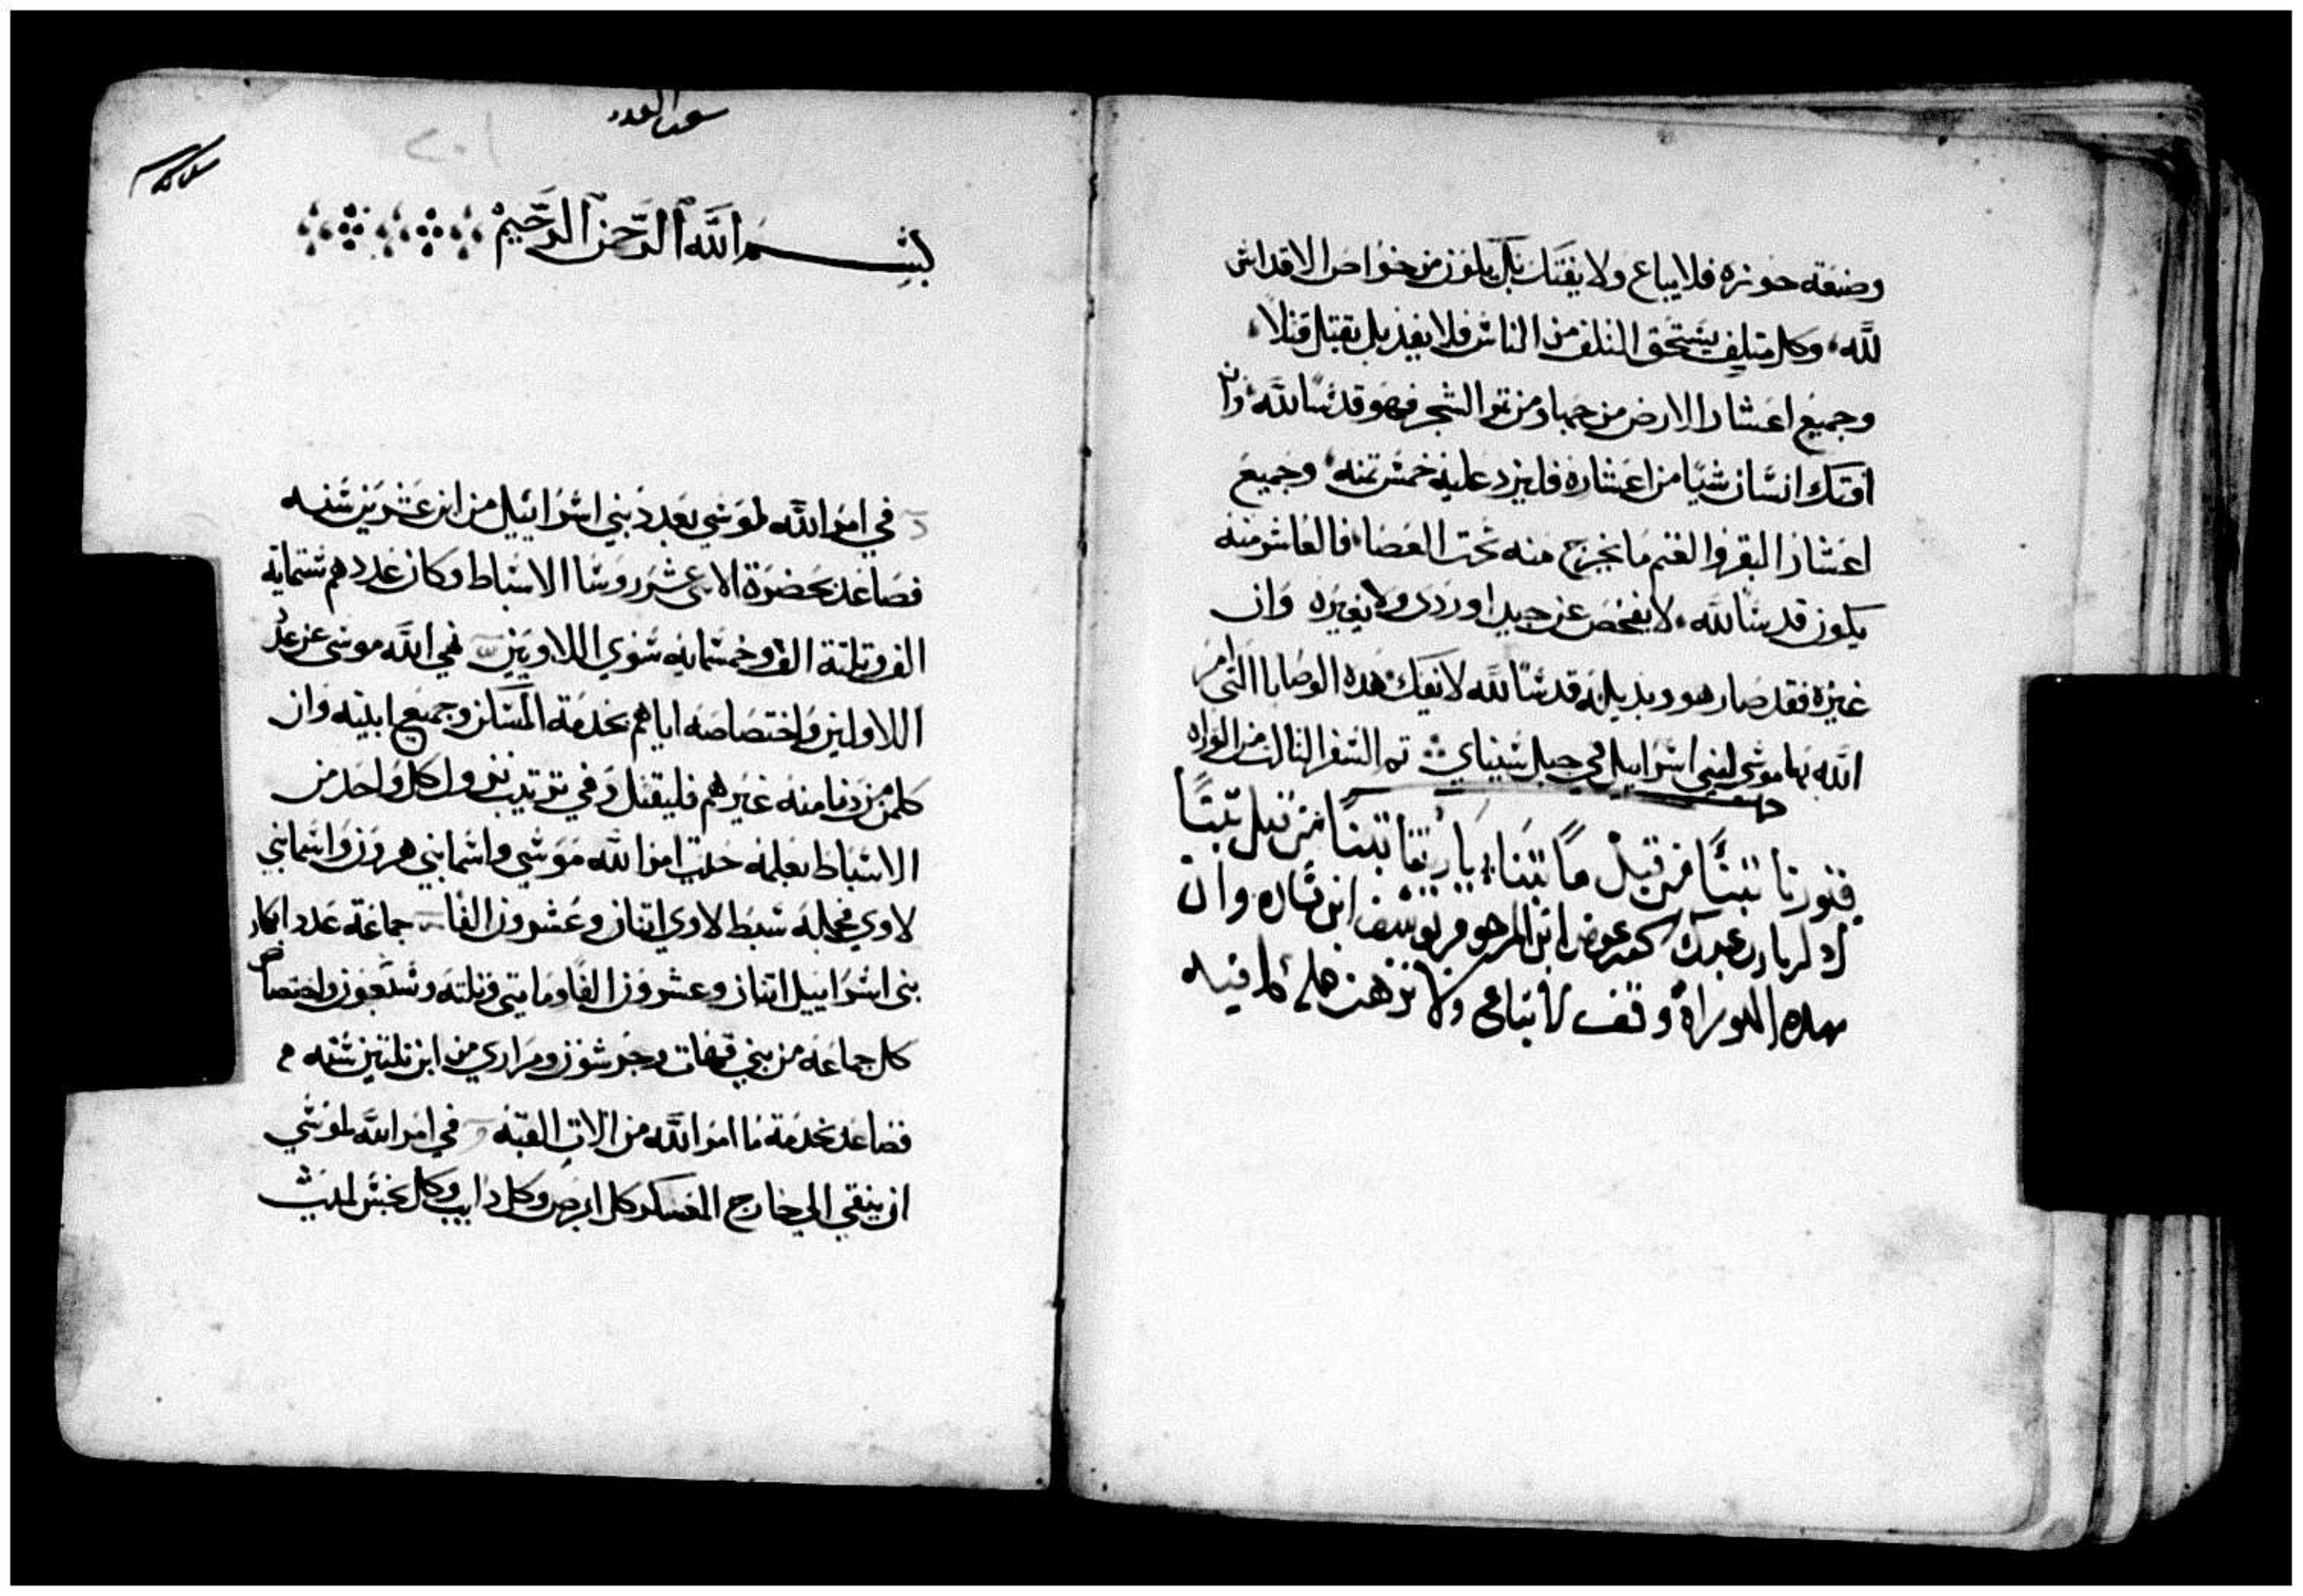 وضيعة حوزه فلا يباع ولا يفتك بل يكون من خواص الاقداس
لله وكل متلف يستحق التلف من الناس فلا يفد بل يقتل قتلا
وجميع اعشار الارض من حبها ومن ثمر الشجر فهو قدسا لله وان
افتك انسان شيا من اعشاره فليزد عليه خمس تمنه وجميع
اعشار البقر والغنم ما يخرج منه تحت العصا فالعاشر منه
يكون قدسا لله لا يفحص عن جيد او ردى ولا يغيره وان
غيره فقد صار هو وبديله قدسا لله لا يفك هده الوصايا التي امر
الله بها موسى لبني اسراييل في جبل سيناي تم السفر التالت من التوراه
من قبل ما
ادكر يارب عبدك عوض ابن المرحوم يوسف ابن وان
بهده التوراة وقف لا تباع ولا ترهن فيه
سفر العدد
بسم الله الرحمن الرحيم
في امر الله لموسي بعدد بني اسراييل من ابن عشرين سنه
فصاعد بحضرة الاثنى عشر روسا الاسباط وكان عددهم ستماية
الف وتلتة الف وخمسمايه سوي اللاويين نهي الله موسى عن عدد
اللاوليين واختصاصه اياهم بخدمة المسكن وجميع ابنيته وان
كلمن دنا منه غيرهم فليقتل وفي ترتيب نزول كل واحد من
الاسباط بعلمه حسب امر الله موسي واسما بني هرون واسما بني
لاوي فجملة سبط لاوي اتنان وعشرون الفا جماعة عدد ابكار
بني اسراييل اتنان وعشرون الفا ومايتي وتلتة وسبعون واختصاص
كل جماعة من بني قهات وجرشون ومراري من ابن تلتين سنه
فصاعد بخدمة ما امر الله من الات القبه في امر الله لموسي
ان ينقي الي خارج العسكر كل ابرص وكل دايب وكل نجس لميت